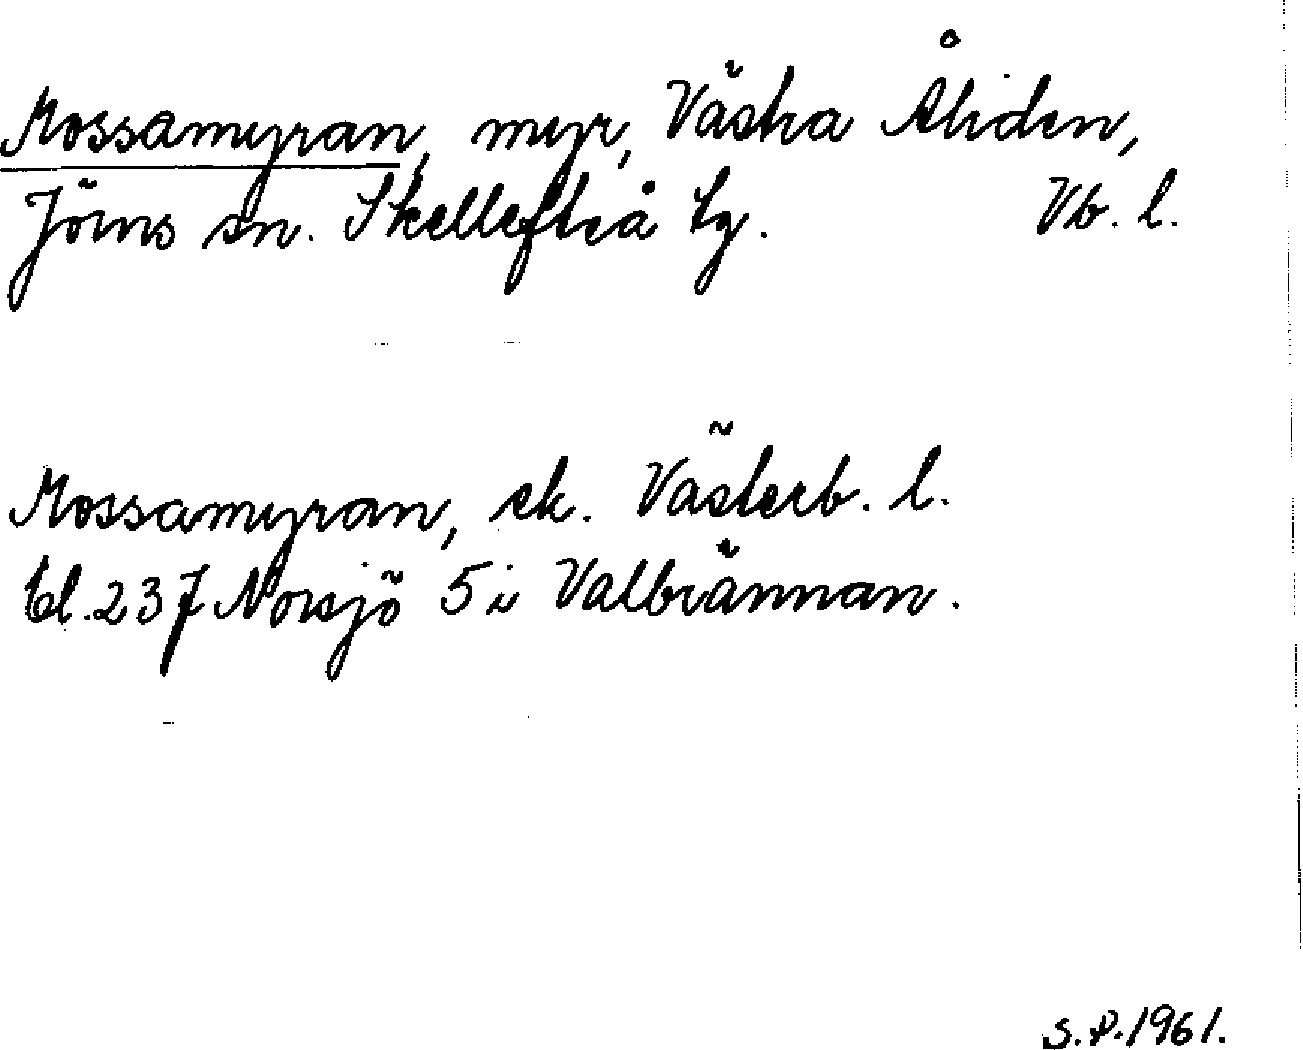 Mossamyran, myr, Västra Åliden,
Jörns sn. Skellefteå tg. Vb. l.
Mossamyran, ek. Västerb. l.
bl. 23 J Norsjö 5 i Valbrännan.
S.P. 1961.